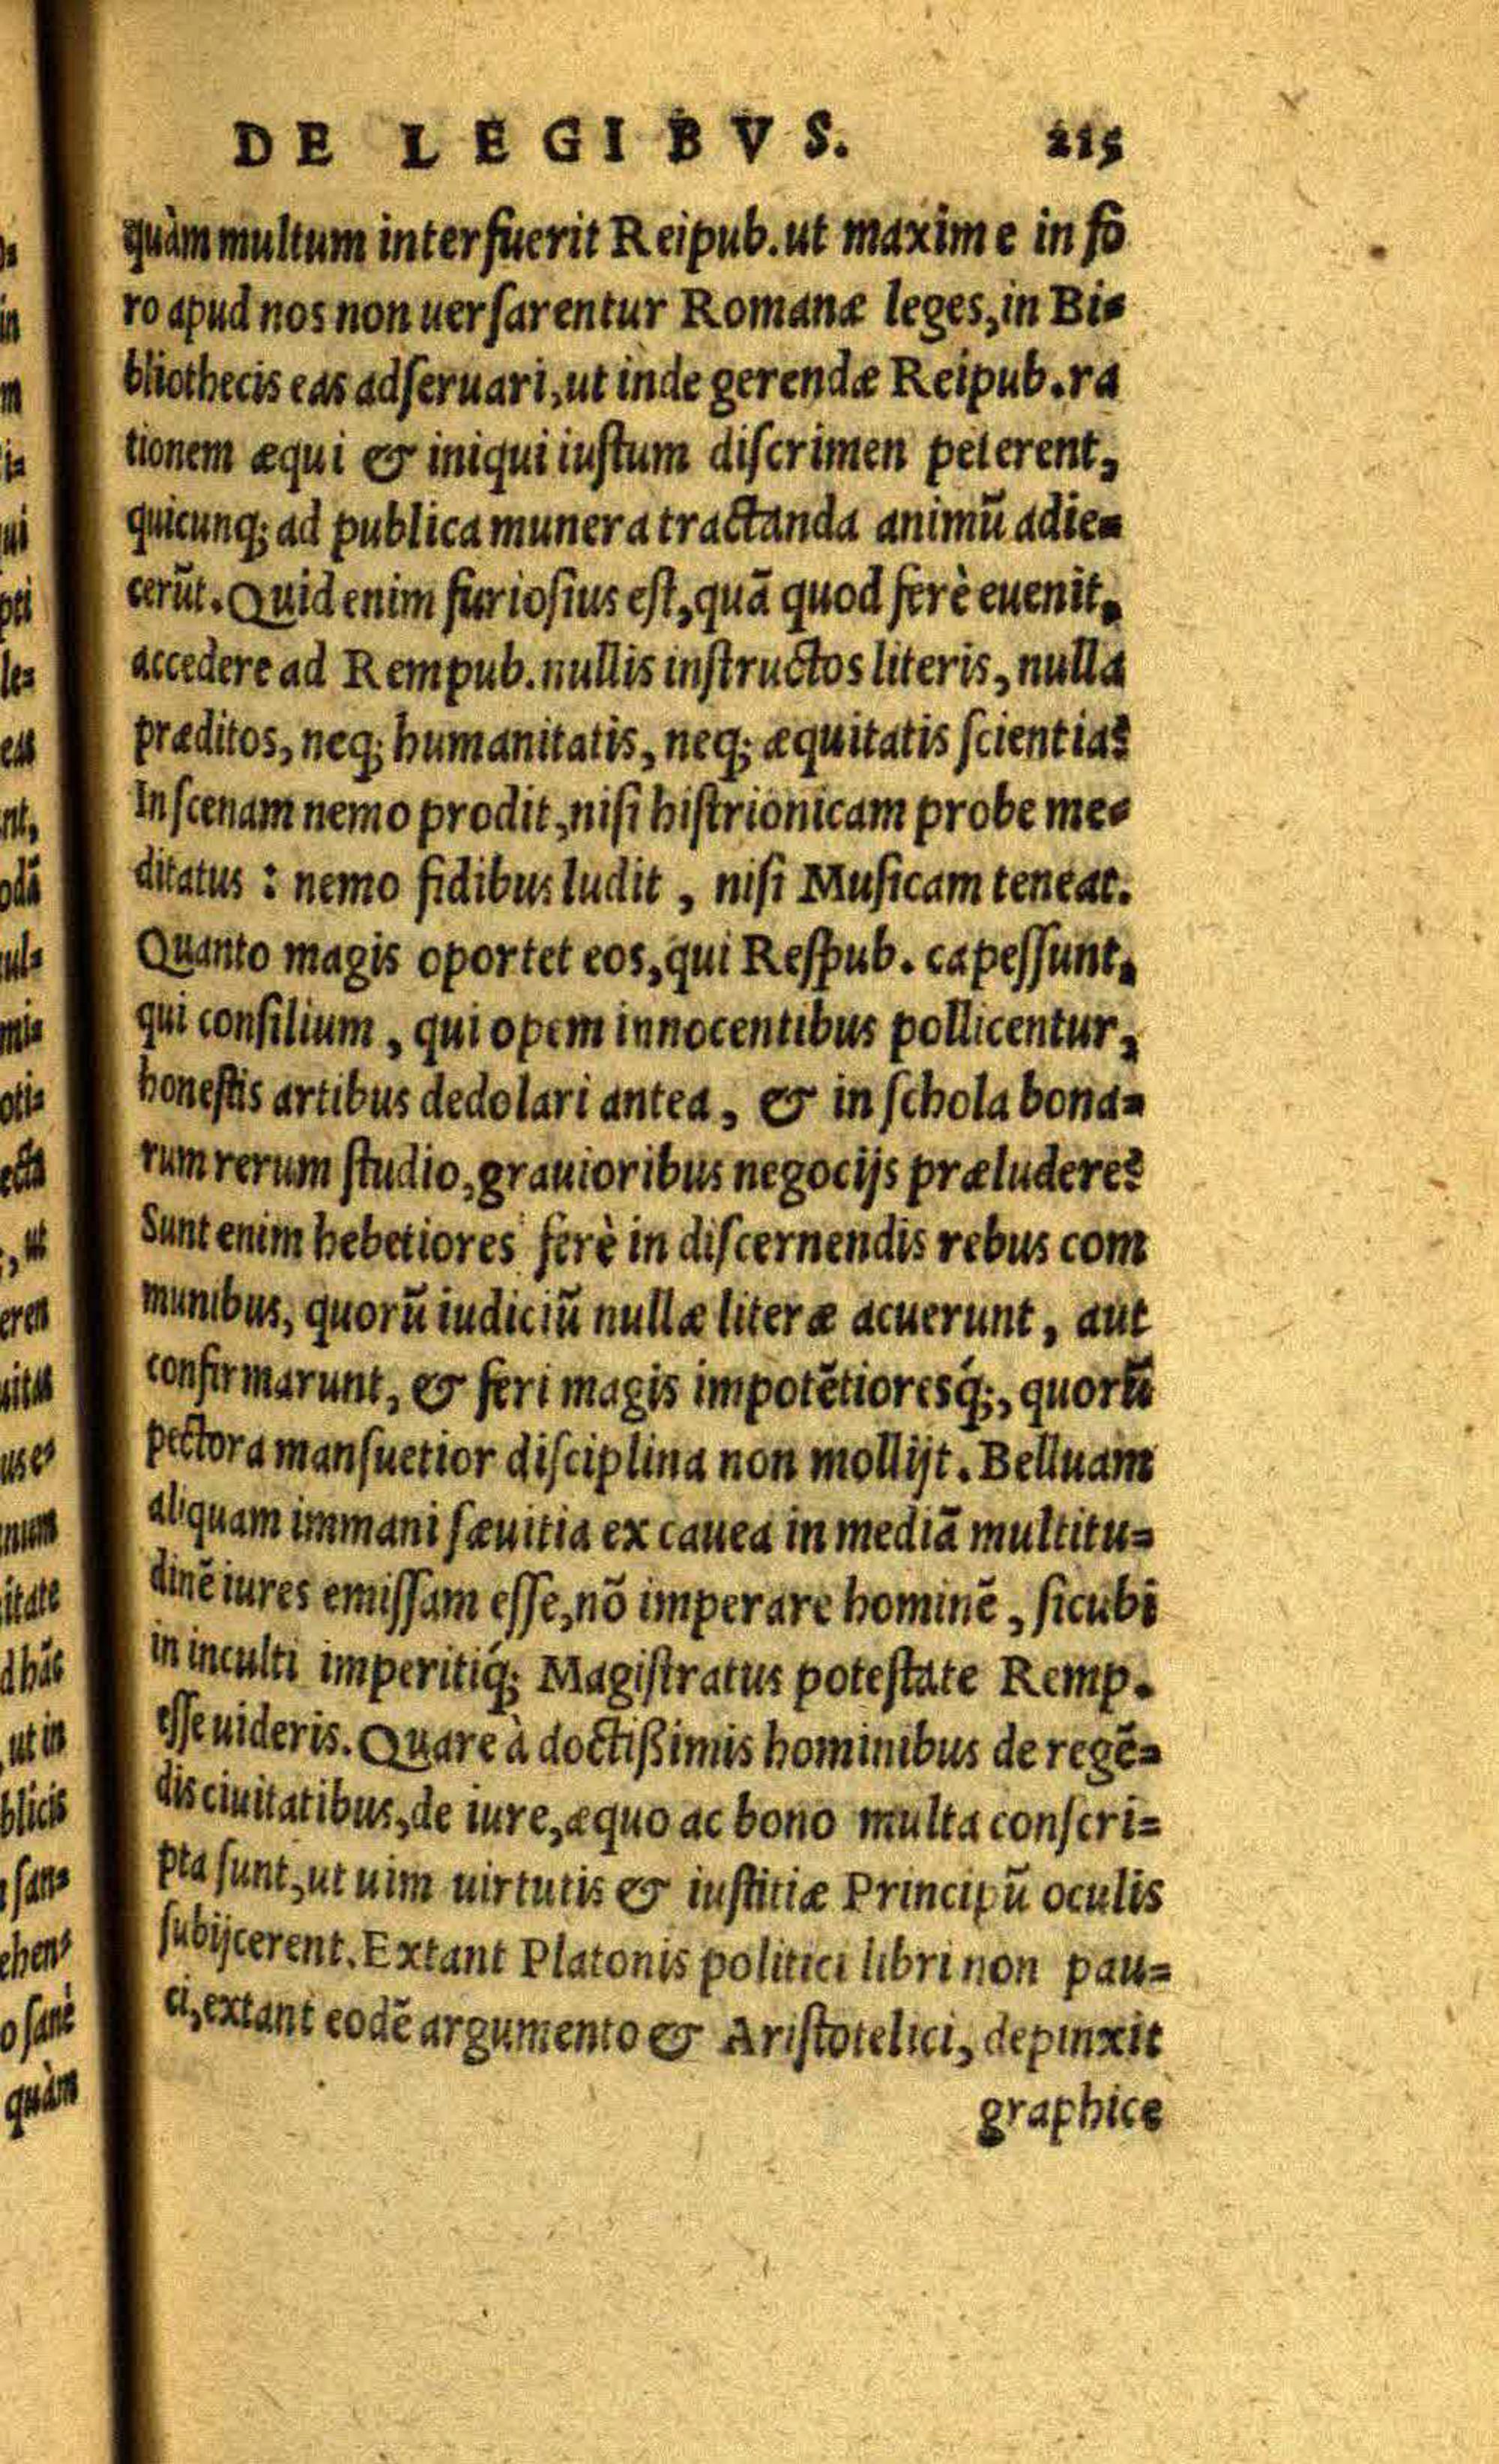 DE LEGIBVS. 215
quàm multum interfuerit Reipub. ut maxime in fo
ro apud nos non uersarentur Romanæ leges, in Bi=
bliothecis eas adseruari, ut inde gerendæ Reipub. ra
tionem æqui & iniqui iustum discrimen peterent,
quicunq; ad publica munera tractanda animū adie=
cerūt. Quid enim furiosius est, quā quod ferè euenit,
accedere ad Rempub. nullis instructos literis, nulla
præditos, neq; humanitatis, neq; æquitatis scientia?
In scenam nemo prodit, nisi histrionicam probe me=
ditatus : nemo fidibus ludit , nisi Musicam teneat.
Quanto magis oportet eos, qui Respub. capessunt,
qui consilium , qui opem innocentibus pollicentur,
honestis artibus dedolari antea, & in schola bona=
rum rerum studio, grauioribus negocijs præludere?
Sunt enim hebetiores ferè in discernendis rebus com
munibus, quorū iudiciū nullæ literæ acuerunt, aut
confirmarunt, & feri magis impotētioresq́;, quorū
pectora mansuetior disciplina non mollijt. Belluam
aliquam immani sæuitia ex cauea in mediā multitu=
dinē iures emissam esse, nō imperare hominē, sicubi
in inculti imperitiq́; Magistratus potestate Remp.
esse uideris. Quare à doctißimis hominibus de regē=
dis ciuitatibus, de iure, æquo ac bono multa conscri=
pta sunt, ut uim uirtutis & iustitiæ Principū oculis
subijcerent. Extant Platonis politici libri non pau=
ci, extant eodē argumento & Aristotelici, depinxit
graphice